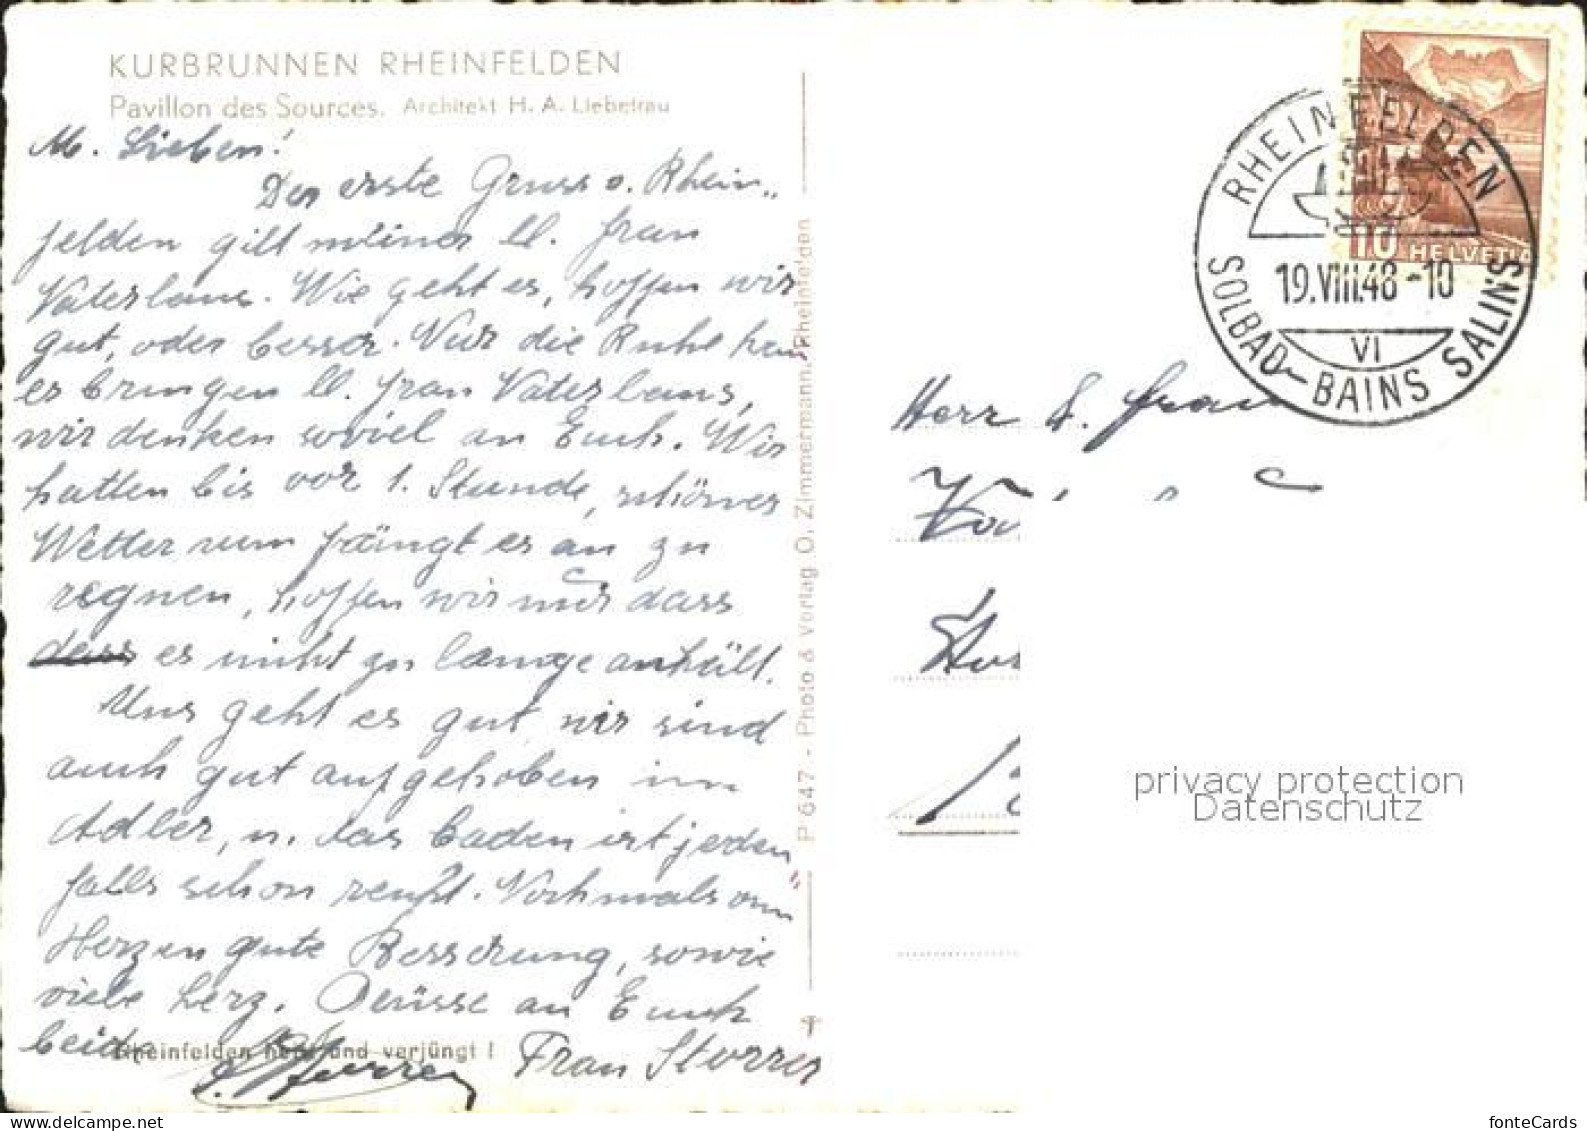 KURBRUNNEN RHEINFELDEN
Pavillon des Sources. Architekt H. A. Liebetrau
M. Lieben!
Der erste Gruss v. Rhein„
felden gilt meiner ll. frau
Vaterlaus. Wie geht es, hoffen wir
gut, oder besser. Nur die Ruhe kann
es bringen ll. frau Vaterlaus,
wir denken soviel an Euch. Wir
hatten bis vor 1. Stunde, schönes
Wetter nun fängt es an zu
regnen, hoffen wir nur dass
dass es nicht zu lange anhält.
Uns geht es gut, wir sind
auch gut aufgehoben im
Adler, u. das baden ist jeden„
falls schon recht. Nochmals von
Herzen gute Besserung, sowie
viele herz. Grüsse an Euch
beide
Frau Storrer
Rheinfelden heilt und verjüngt!
P 647 - Photo & Verlag O. Zimmermann, Rheinfelden
HELVETIA
10
RHEINFELDEN
19.VIII.48-10
VI
SOLBAD-BAINS SALINS
Herr
privacy protection
Datenschutz
fonteCards